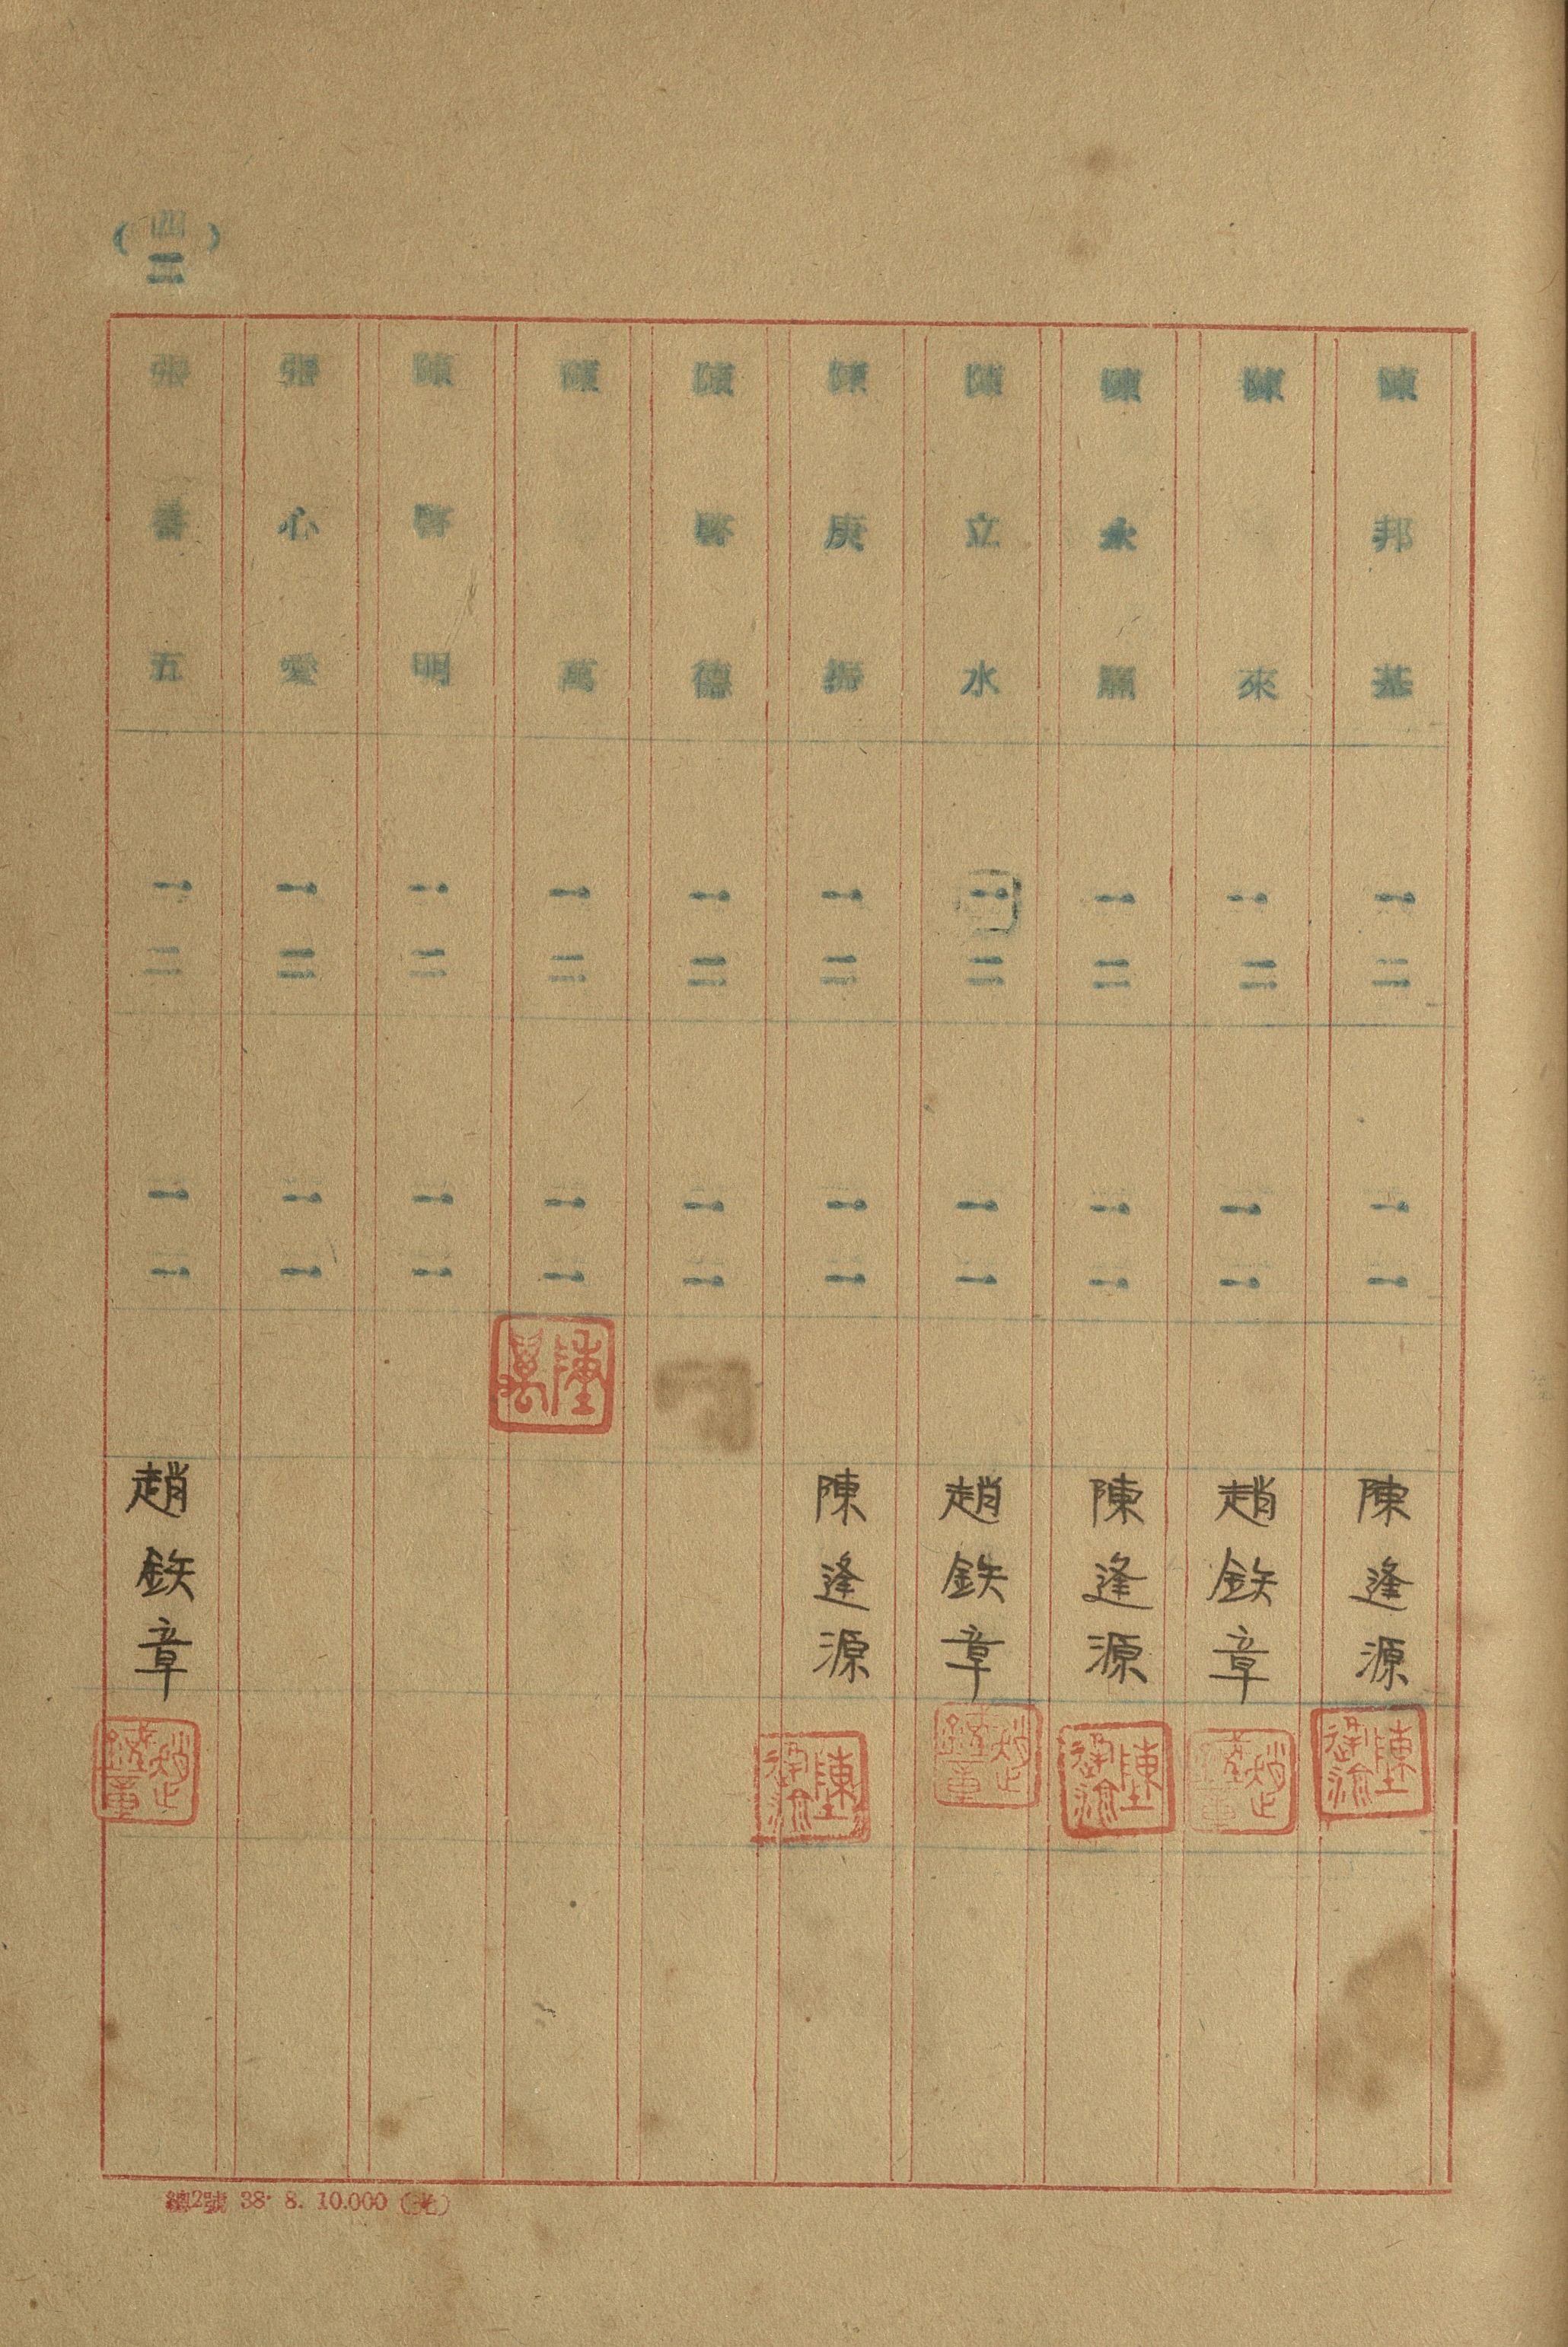 陳邦基 一二 一一 陳逢源 陳逢源
陳來 一二 一一 趙鉄章
陳永 一二 一一 陳逢源 陳逢源
陳立水 一二 一一 趙鉄章
陳庚 一二 一一 陳逢源 陳逢源
陳啓德 一二 一一
陳萬 一二 一一 陳萬
陳啓明 一二 一一
張心愛 一二 一一
張番五 一二 一一 趙鉄章
(四三)
總2號 38. 8. 10.000 (光)